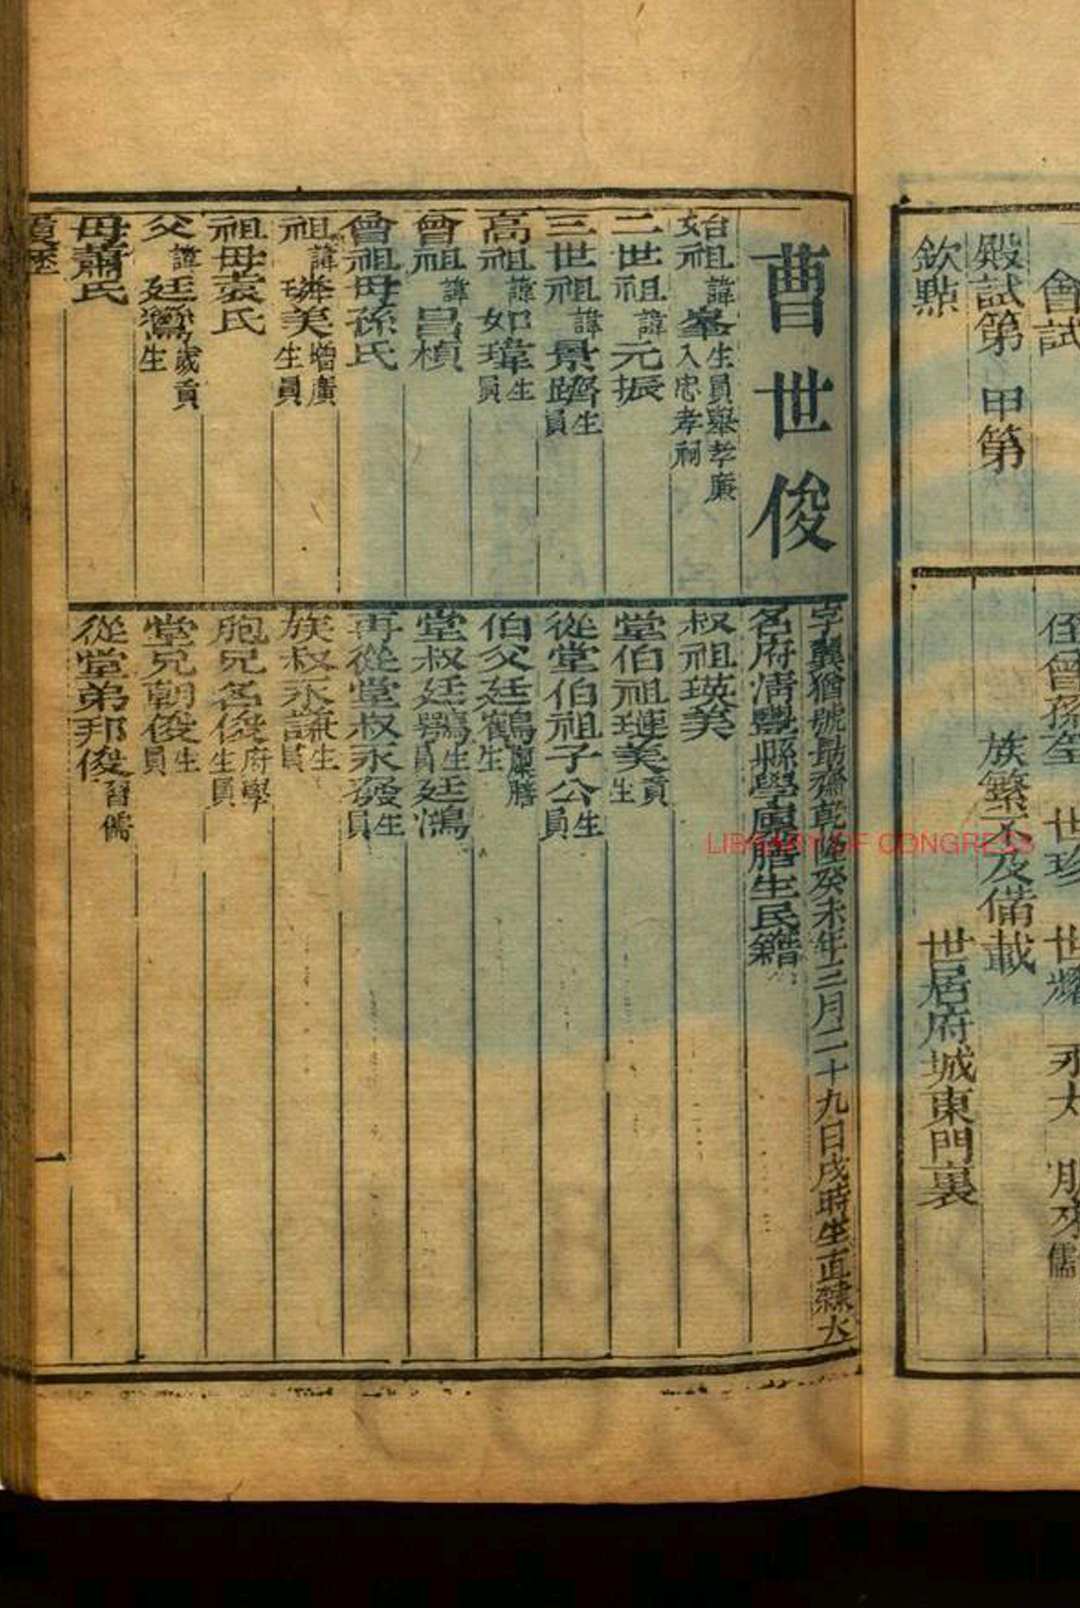 會試
殿試第 甲第
欽點
侄曾孫 世珍 世耀 永太 朋來儒
族繁不及備載
世居府城東門裏
曹世俊
始祖諱峯生員舉孝廉入忠孝祠
二世祖諱元振
三世祖諱景躋生員
高祖諱如瑋生員
曾祖諱昌楨
曾祖母孫氏
祖諱璘美增廣生員
祖母袁氏
父諱廷歲貢生
母蕭氏
字猶號勛齋乾隆癸未年三月二十九日戌時生直隸大
名府清豐縣學廩膳生民籍
叔祖瑛美
堂伯祖璉美貢生
從堂伯祖子公生員
伯父廷鶴廩膳生
堂叔廷鶚生員廷鴻
再從堂叔永發生員
族叔永謙生員
胞兄名俊府學生員
堂兄朝俊生員
從堂弟邦俊習儒
一
LIBRARY OF CONGRESS